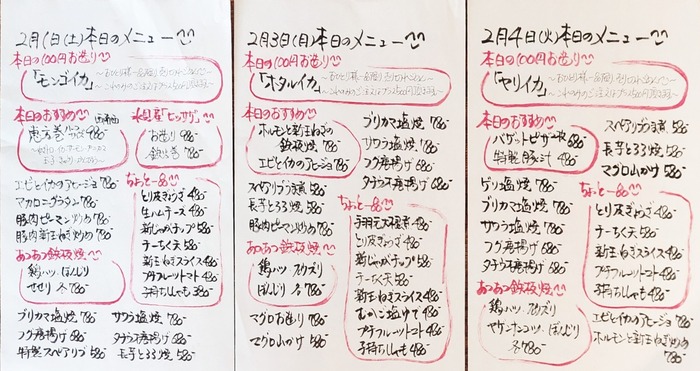 2月1日(土)本日のメニュー
本日の100円お造り
「モンゴイカ」
本日のおすすめ
恵方巻 980-
お造り 980-
鉄火巻 780-
エビとイカのアヒージョ 780-
マカロニグラタン 780-
豚肉ピーマン炒め 780-
豚肉新玉ねぎ炒め 780-
ちょっと一品
とり皮ぎょうざ 480-
生ハムチーズ 480-
新じゃがチップ 580-
ちーちく天 580-
新玉ねぎスライス 480-
プチフルーツトマト 480-
子持ちししゃも 380-
あつあつ鉄板焼
鶏ハツ ぼんじり
せせり 各780-
ブリカマ塩焼 780-
フグ唐揚げ 680-
特製スペアリブ 580-
サワラ塩焼 780-
タチウオ唐揚げ 680-
長芋とろろ焼 580-
2月3日(月)本日のメニュー
本日の100円お造り
「ホタルイカ」
本日のおすすめ
ホルモンと新玉ねぎの
鉄板焼 780-
エビとイカのアヒージョ 780-
スペアリブうま煮 580-
長芋とろろ焼 580-
豚肉ピーマン炒め 780-
あつあつ鉄板焼
鶏ハツ ズリ
ぼんじり 各780-
マグロお造り 780-
マグロ山かけ 580-
ブリカマ塩焼 780-
サワラ塩焼 780-
フグ唐揚げ 680-
タチウオ唐揚げ 680-
ちょっと一品
手羽元大根煮 480-
とり皮ぎょうざ 480-
新じゃがチップ 580-
ちーちく天 580-
新玉ねぎスライス 480-
むかご塩ゆで 480-
プチフルーツトマト 480-
子持ちししゃも 480-
2月4日(火)本日のメニュー
本日の100円お造り
「ヤリイカ」
本日のおすすめ
バゲットピザ 480-
特製豚汁 480-
ゲソ塩焼 780-
ブリカマ塩焼 780-
サワラ塩焼 780-
フグ唐揚げ 680-
タチウオ唐揚げ 680-
あつあつ鉄板焼
鶏ハツ ズリ
ヤゲンナンコツ・ぼんじり
各780-
スペアリブうま煮 580-
長芋とろろ焼 580-
マグロ山かけ 580-
ちょっと一品
とり皮ぎょうざ 480-
ちーちく天 580-
新玉ねぎスライス 480-
プチフルーツトマト 480-
子持ちししゃも 480-
エビとイカのアヒージョ 780-
ホルモンと新玉ねぎ炒め
780-